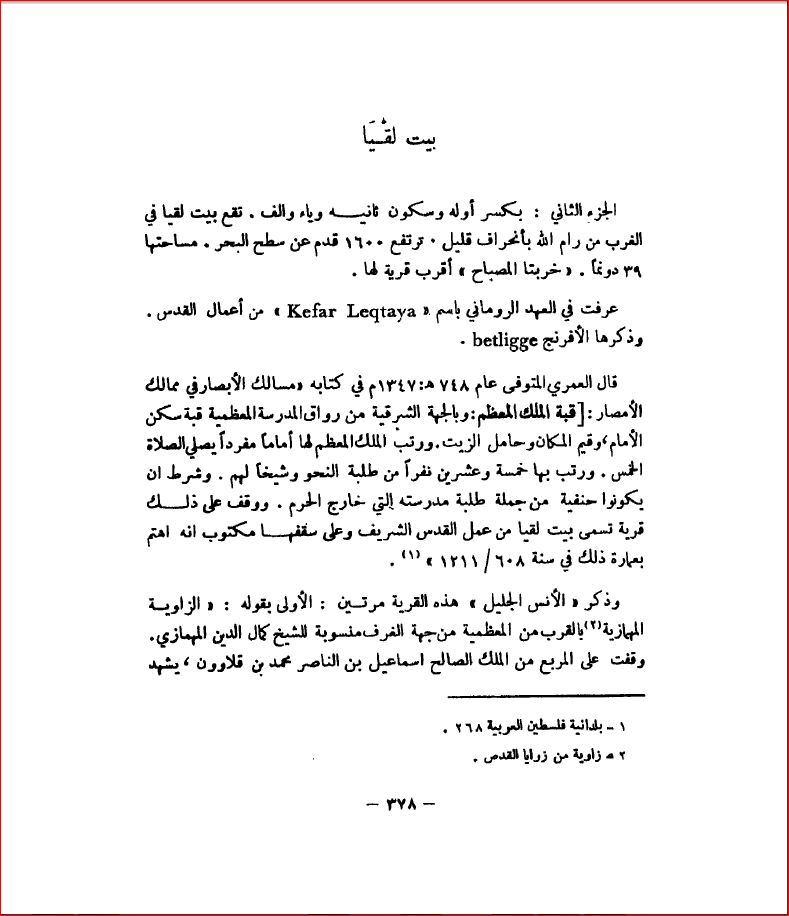 بيت لقْيَا
الجزء الثاني : بكسر أوله وسكون ثانيه وياء والف . تقع بيت لقيا في
الغرب من رام الله بأنحراف قليل . ترتفع ١٦٠٠ قدم عن سطح البحر . مساحتها
٣٩ دونماً . « خربتا المصباح » أقرب قرية لها .
عرفت في العهد الروماني باسم « Kefar Leqtaya » من أعمال القدس .
وذكرها الأفرنج betligge .
قال العمري المتوفى عام ٧٤٨ هـ : ١٣٤٧م في كتابه «مسالك الأبصار في ممالك
الأمصار : [قبة الملك المعظم : وبالجهة الشرقية من رواق المدرسة المعظمية قبة سكن
الأمام ، وقيم المكان وحامل الزيت . ورتب الملك المعظم لها أماماً مفرداً يصلي الصلاة
الخمس . ورتب بها خمسة وعشرين نفراً من طلبة النحو وشيخاً لهم . وشرط ان
يكونوا حنفية من جملة طلبة مدرسته التي خارج الحرم . ووقف على ذلك
قرية تسمى بيت لقيا من عمل القدس الشريف وعلى سقفها مكتوب انه اهتم
بعمارة ذلك في سنة ٦٠٨ / ١٢١١ » (١) .
وذكر « الأنس الجليل » هذه القرية مرتين : الأولى بقوله : « الزاوية
المهمازية (٢) بالقرب من المعظمية من جهة الغرف منسوبة للشيخ كمال الدين المهمازي .
وقفت على المربع من الملك الصالح اسماعيل بن الناصر محمد بن قلاوون ، يشهد
١ - بلدانية فلسطين العربية ٢٦٨ .
٢ - زاوية من زرايا القدس .
- ٣٧٨ -